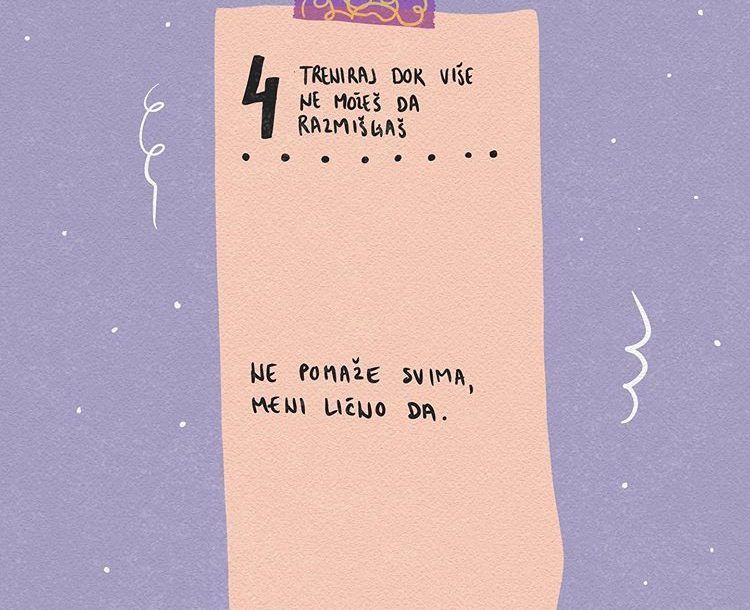 4 TRENIRAJ DOK VIŠE
NE MOŽEŠ DA
RAZMIŠLJAŠ
NE POMAŽE SVIMA,
MENI LIČNO DA.